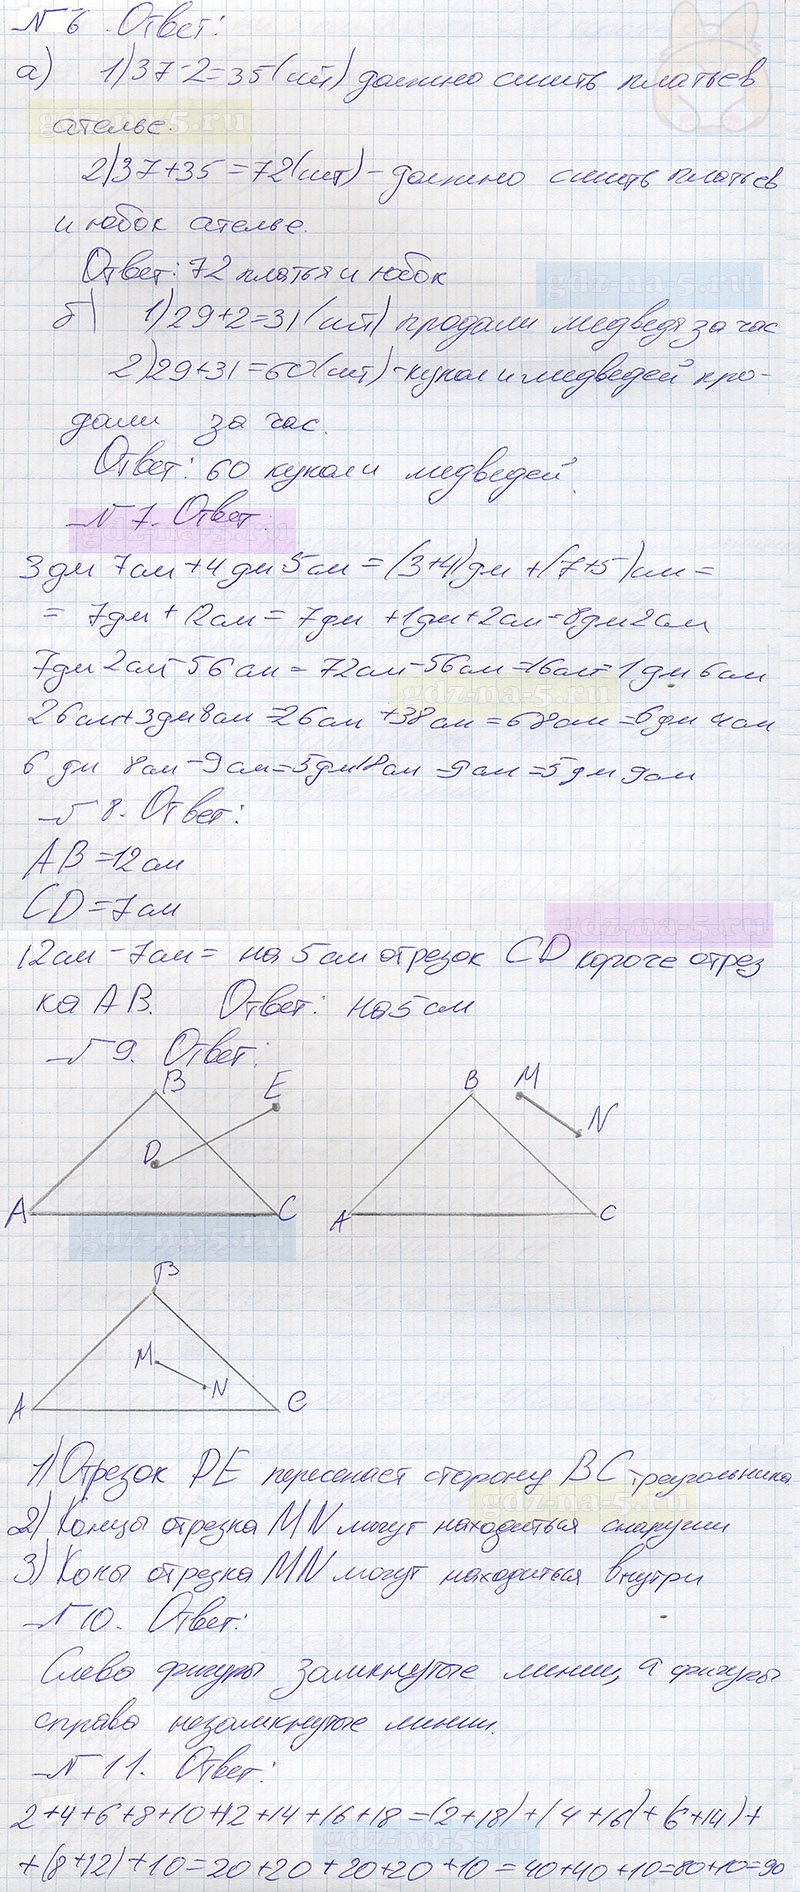 № 6. Ответ:
а) 1) 37-2=35(шт) должно сшить платьев
ателье.
2) 37+35=72(шт) - должно сшить платьев
и юбок ателье.
Ответ: 72 платья и юбок
б) 1) 29+2=31(шт) продали медведя за час
2) 29+31=60(шт) - кукол и медведей про-
дали за час.
Ответ: 60 кукол и медведей.
№ 7. Ответ:
3дм 7см + 4дм 5см = (3+4)дм + (7+5)см =
= 7дм + 12см = 7дм + 1дм + 2см = 8дм 2см
7дм 2см - 56см = 72см - 56см = 16см = 1дм 6см
26см + 3дм 8см = 26см + 38см = 68см = 6дм 4см
6 дм 8см - 9см = 5дм 18см - 9см = 5дм 9см
№ 8. Ответ:
АВ = 12см
CD = 7см
12см - 7см = на 5см отрезок CD короче отрез
ка АВ. Ответ: на 5см
№ 9. Ответ:
B E B M
D N
A C A C
B
M
N
A C
1) Отрезок DE пересекает сторону BC треугольника
2) Концы отрезка MN могут находиться снаружи
3) Коны отрезка MN могут находиться внутри
№ 10. Ответ:
Слева фигуры замкнутые линии, а фигуры
справа незамкнутые линии.
№ 11. Ответ:
2+4+6+8+10+12+14+16+18=(2+18)+(4+16)+(6+14)+
+(8+12)+10=20+20+20+20+10=40+40+10=80+10=90
gdz-na-5.ru
gdz-na-5.ru
gdz-na-5.ru
gdz-na-5.ru
gdz-na-5.ru
gdz-na-5.ru
gdz-na-5.ru
gdz-na-5.ru